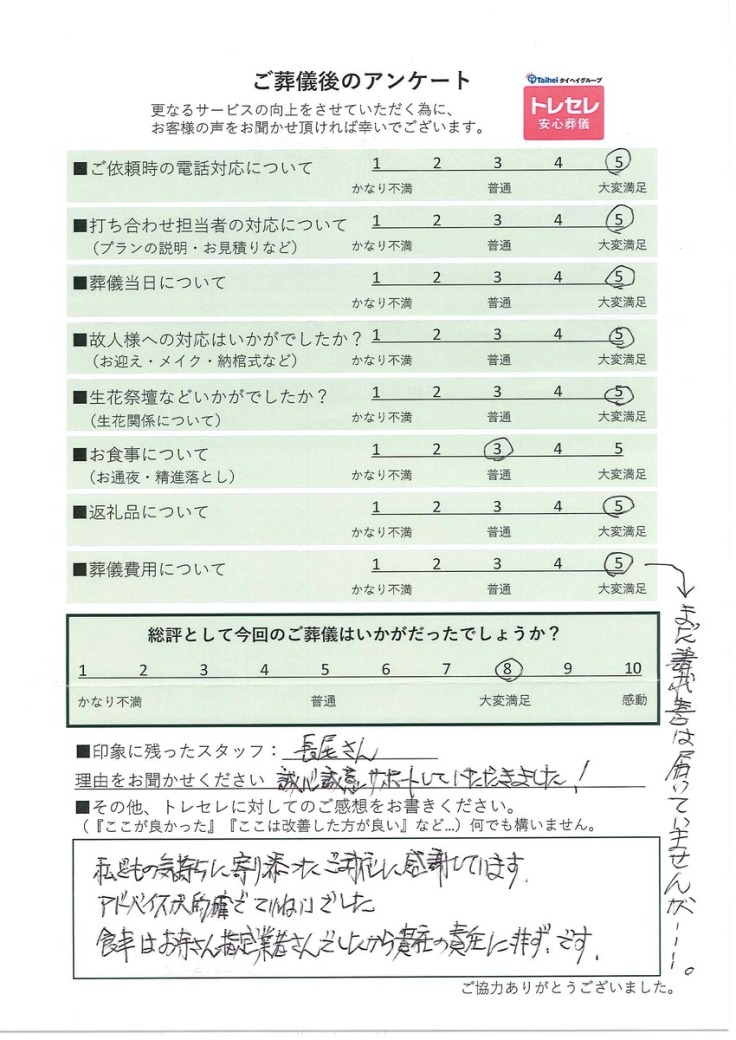 ご葬儀後のアンケート
Taihei タイヘイグループ
トレセレ
安心葬儀
更なるサービスの向上をさせていただく為に、
お客様の声をお聞かせ頂ければ幸いでございます。
■ご依頼時の電話対応について 1 2 3 4 5
かなり不満 普通 大変満足
■打ち合わせ担当者の対応について 1 2 3 4 5
（プランの説明・お見積りなど） かなり不満 普通 大変満足
■葬儀当日について 1 2 3 4 5
かなり不満 普通 大変満足
■故人様への対応はいかがでしたか？ 1 2 3 4 5
（お迎え・メイク・納棺式など） かなり不満 普通 大変満足
■生花祭壇などいかがでしたか？ 1 2 3 4 5
（生花関係について） かなり不満 普通 大変満足
■お食事について 1 2 3 4 5
（お通夜・精進落とし） かなり不満 普通 大変満足
■返礼品について 1 2 3 4 5
かなり不満 普通 大変満足
■葬儀費用について 1 2 3 4 5
かなり不満 普通 大変満足
まだ請求書は届いていませんが---。
総評として今回のご葬儀はいかがだったでしょうか？
1 2 3 4 5 6 7 8 9 10
かなり不満 普通 大変満足 感動
■印象に残ったスタッフ： 長尾さん
理由をお聞かせください 誠心誠意サポートしていただきました！
■その他、トレセレに対してのご感想をお書きください。
（『ここが良かった』『ここは改善した方が良い』など…）何でも構いません。
私どもの気持ちに寄り添ったご対応に感謝しています.
アドバイスが的確でていねいでした
食事はお寺さん指定業者さんでしたから貴社の責任に非ず.です.
ご協力ありがとうございました。